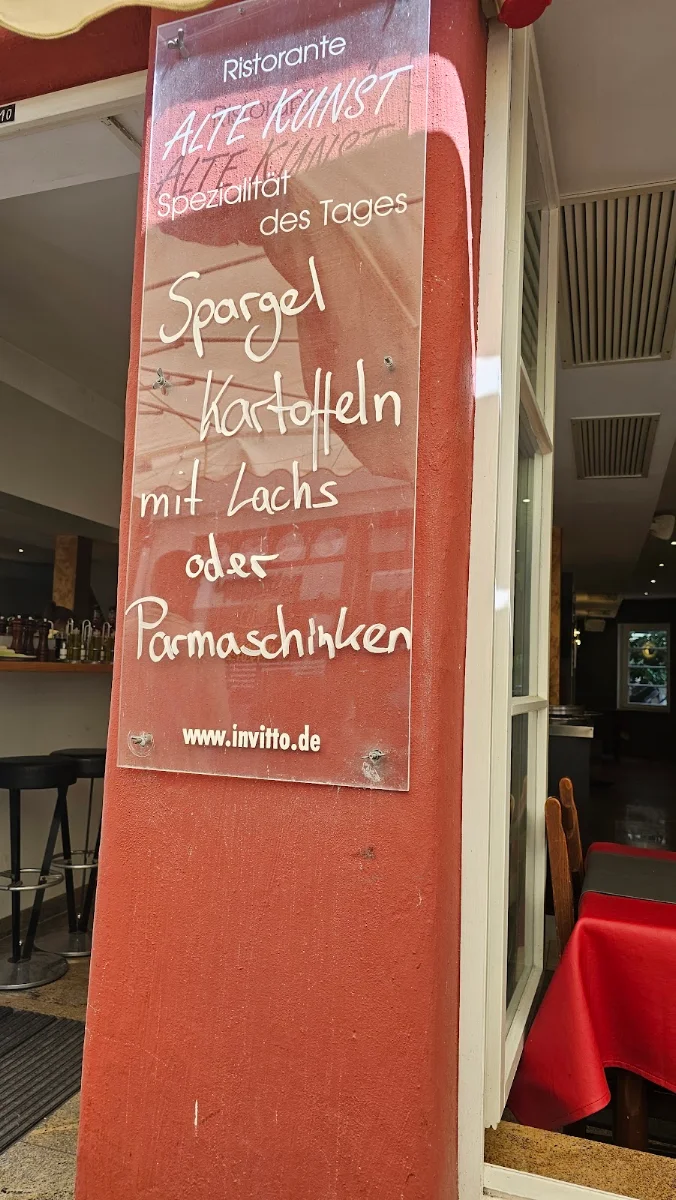 10
Ristorante
ALTE KUNST
Spezialität
des Tages
Spargel
Kartoffeln
mit Lachs
oder
Parmaschinken
www.invitto.de